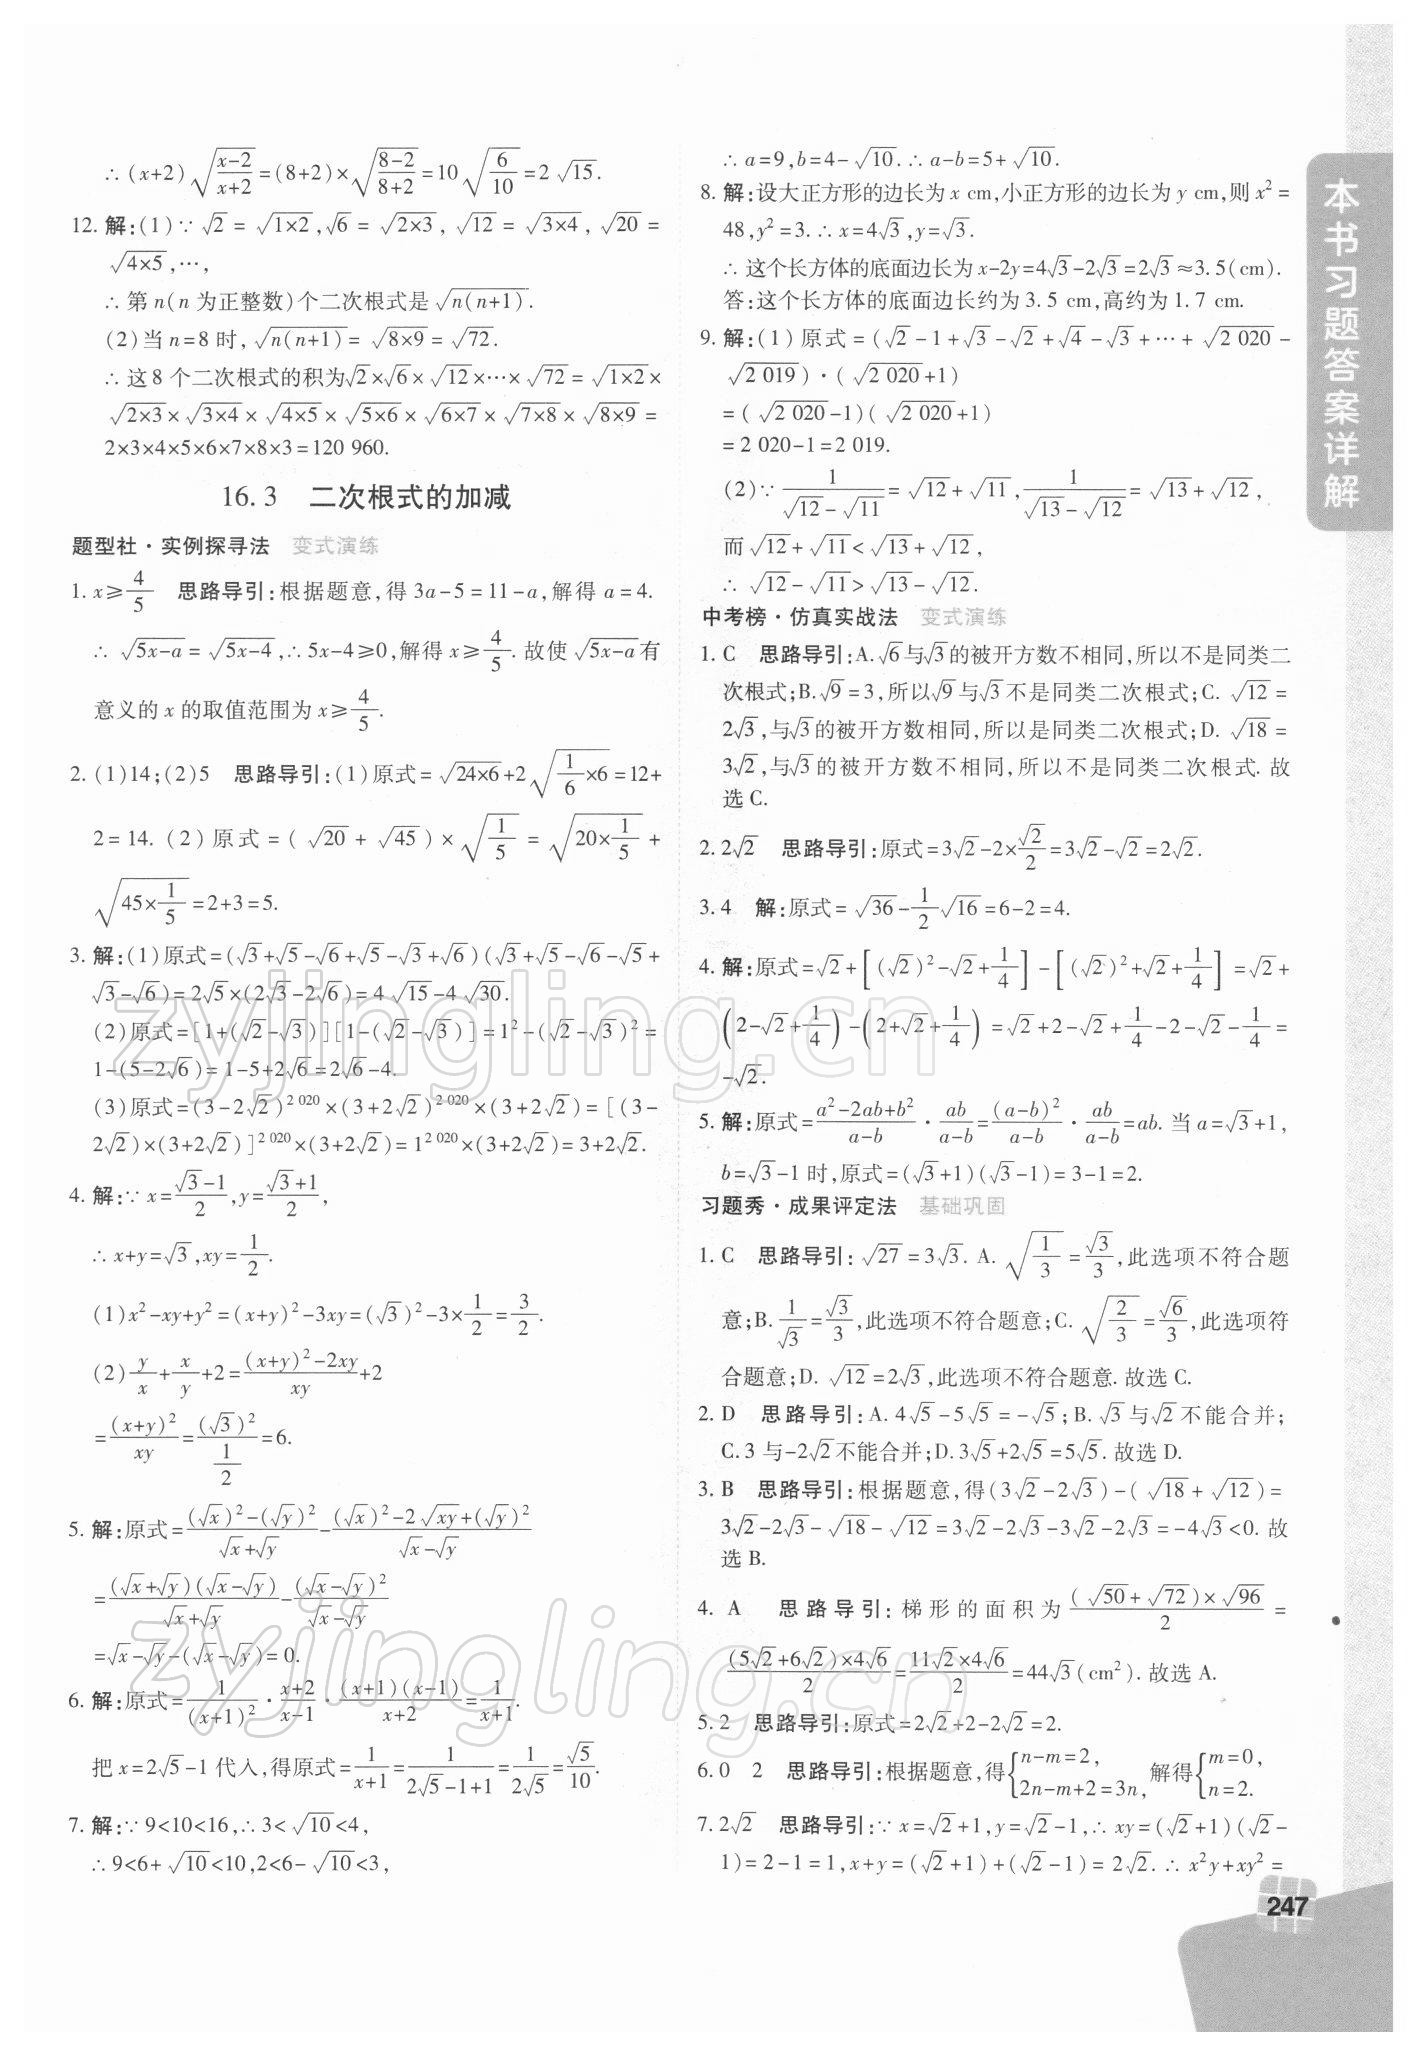 ∴ (x+2)√((x-2)/(x+2))=(8+2)×√((8-2)/(8+2))=10√(6/10)=2√15.
12. 解:(1)∵ √2 = √(1×2),√6 = √(2×3), √12 = √(3×4), √20 =
√(4×5),…,
∴ 第 n(n 为正整数)个二次根式是√(n(n+1)).
(2)当 n=8 时,√(n(n+1)) = √(8×9) = √72.
∴ 这 8 个二次根式的积为√2×√6×√12×…×√72=√(1×2)×
√(2×3)×√(3×4)×√(4×5)×√(5×6)×√(6×7)×√(7×8)×√(8×9)=
2×3×4×5×6×7×8×3=120 960.
16.3 二次根式的加减
题型社·实例探寻法 变式演练
1. x≥4/5 思路导引:根据题意,得 3a-5=11-a,解得 a=4.
∴ √(5x-a)=√(5x-4),∴ 5x-4≥0,解得 x≥4/5. 故使√(5x-a)有
意义的 x 的取值范围为 x≥4/5.
2. (1)14;(2)5 思路导引:(1)原式=√(24×6)+2√(1/6×6)=12+
2=14. (2)原式=(√20+√45)×√(1/5)=√(20×1/5)+
√(45×1/5)=2+3=5.
3. 解:(1)原式=(√3+√5-√6+√5-√3+√6)(√3+√5-√6-√5+
√3-√6)=2√5×(2√3-2√6)=4√15-4√30.
(2)原式=[1+(√2-√3)][1-(√2-√3)]=1²-(√2-√3)²=
1-(5-2√6)=1-5+2√6=2√6-4.
(3)原式=(3-2√2)^2 020×(3+2√2)^2 020×(3+2√2)=[(3-
2√2)×(3+2√2)]^2 020×(3+2√2)=1^2 020×(3+2√2)=3+2√2.
4. 解:∵ x=(√3-1)/2,y=(√3+1)/2,
∴ x+y=√3,xy=1/2.
(1)x²-xy+y²=(x+y)²-3xy=(√3)²-3×1/2=3/2.
(2)y/x+x/y+2=((x+y)²-2xy)/xy+2
=(x+y)²/xy=(√3)²/(1/2)=6.
5. 解:原式=((√x)²-(√y)²)/(√x+√y)-((√x)²-2√xy+(√y)²)/(√x-√y)
=(√x+√y)(√x-√y)/(√x+√y)-(√x-√y)²/(√x-√y)
=√x-√y-(√x-√y)=0.
6. 解:原式=1/(x+1)²·(x+2)/(x-1)·(x+1)(x-1)/(x+2)=1/(x+1).
把 x=2√5-1 代入,得原式=1/(x+1)=1/(2√5-1+1)=1/(2√5)=√5/10.
7. 解:∵ 9<10<16,∴ 3<√10<4,
∴ 9<6+√10<10,2<6-√10<3,
∴ a=9,b=4-√10. ∴ a-b=5+√10.
8. 解:设大正方形的边长为 x cm,小正方形的边长为 y cm,则 x²=
48,y²=3. ∴ x=4√3,y=√3.
∴ 这个长方体的底面边长为 x-2y=4√3-2√3=2√3≈3.5(cm).
答:这个长方体的底面边长约为 3.5 cm,高约为 1.7 cm.
9. 解:(1)原式=(√2-1+√3-√2+√4-√3+…+√2 020-
√2 019)·(√2 020+1)
=(√2 020-1)(√2 020+1)
=2 020-1=2 019.
(2)∵ 1/(√12-√11)=√12+√11,1/(√13-√12)=√13+√12,
而√12+√11<√13+√12,
∴ √12-√11>√13-√12.
中考榜·仿真实战法 变式演练
1. C 思路导引:A.√6与√3的被开方数不相同,所以不是同类二
次根式;B.√9=3,所以√9与√3不是同类二次根式;C.√12=
2√3,与√3的被开方数相同,所以是同类二次根式;D.√18=
3√2,与√3的被开方数不相同,所以不是同类二次根式. 故
选 C.
2. 2√2 思路导引:原式=3√2-2×√2/2=3√2-√2=2√2.
3. 4 解:原式=√36-1/2√16=6-2=4.
4. 解:原式=√2+[(√2)²-√2+1/4]-[(√2)²+√2+1/4]=√2+
(2-√2+1/4)-(2+√2+1/4)=√2+2-√2+1/4-2-√2-1/4=
-√2.
5. 解:原式=(a²-2ab+b²)/(a-b)·ab/(a-b)=(a-b)²/(a-b)·ab/(a-b)=ab. 当 a=√3+1,
b=√3-1 时,原式=(√3+1)(√3-1)=3-1=2.
习题秀·成果评定法 基础巩固
1. C 思路导引:√27=3√3. A. √(1/3)=√3/3,此选项不符合题
意;B. 1/√3=√3/3,此选项不符合题意;C. √(2/3)=√6/3,此选项符
合题意;D. √12=2√3,此选项不符合题意. 故选 C.
2. D 思路导引:A. 4√5-5√5=-√5;B. √3与√2不能合并;
C. 3 与-2√2不能合并;D. 3√5+2√5=5√5. 故选 D.
3. B 思路导引:根据题意,得(3√2-2√3)-(√18+√12)=
3√2-2√3-√18-√12=3√2-2√3-3√2-2√3=-4√3<0. 故
选 B.
4. A 思路导引:梯形的面积为 (√50+√72)×√96/2 =
(5√2+6√2)×4√6/2=11√2×4√6/2=44√3(cm²). 故选 A.
5. 2 思路导引:原式=2√2+2-2√2=2.
6. 0 2 思路导引:根据题意,得{n-m=2, 2n-m+2=3n, 解得{m=0, n=2.
7. 2√2 思路导引:∵ x=√2+1,y=√2-1,∴ xy=(√2+1)(√2-
1)=2-1=1,x+y=(√2+1)+(√2-1)=2√2. ∴ x²y+xy²=
本书习题答案详解
247
zyjingling.cn
zyjingling.cn